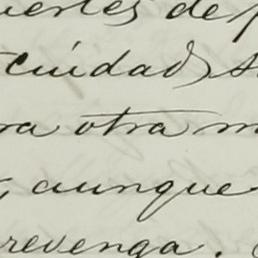 uertes de p
cuidad, s
ra otra m
, aunque
revenga.